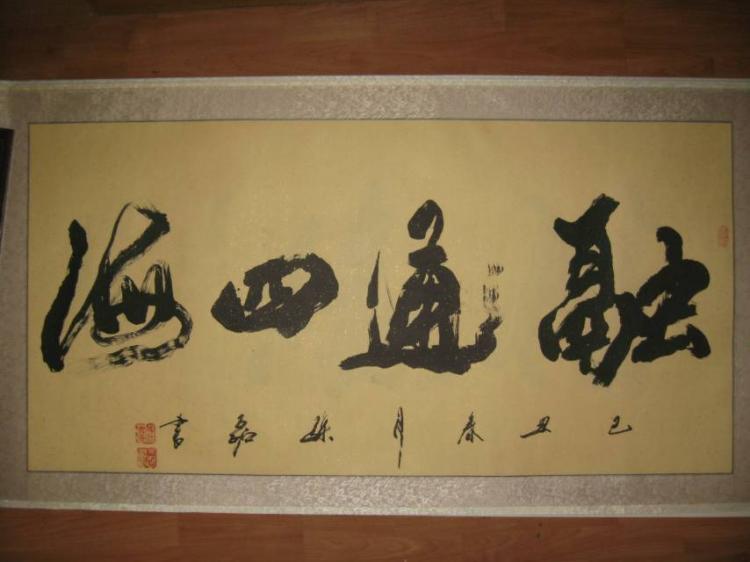 融通四海
己丑春月磊书